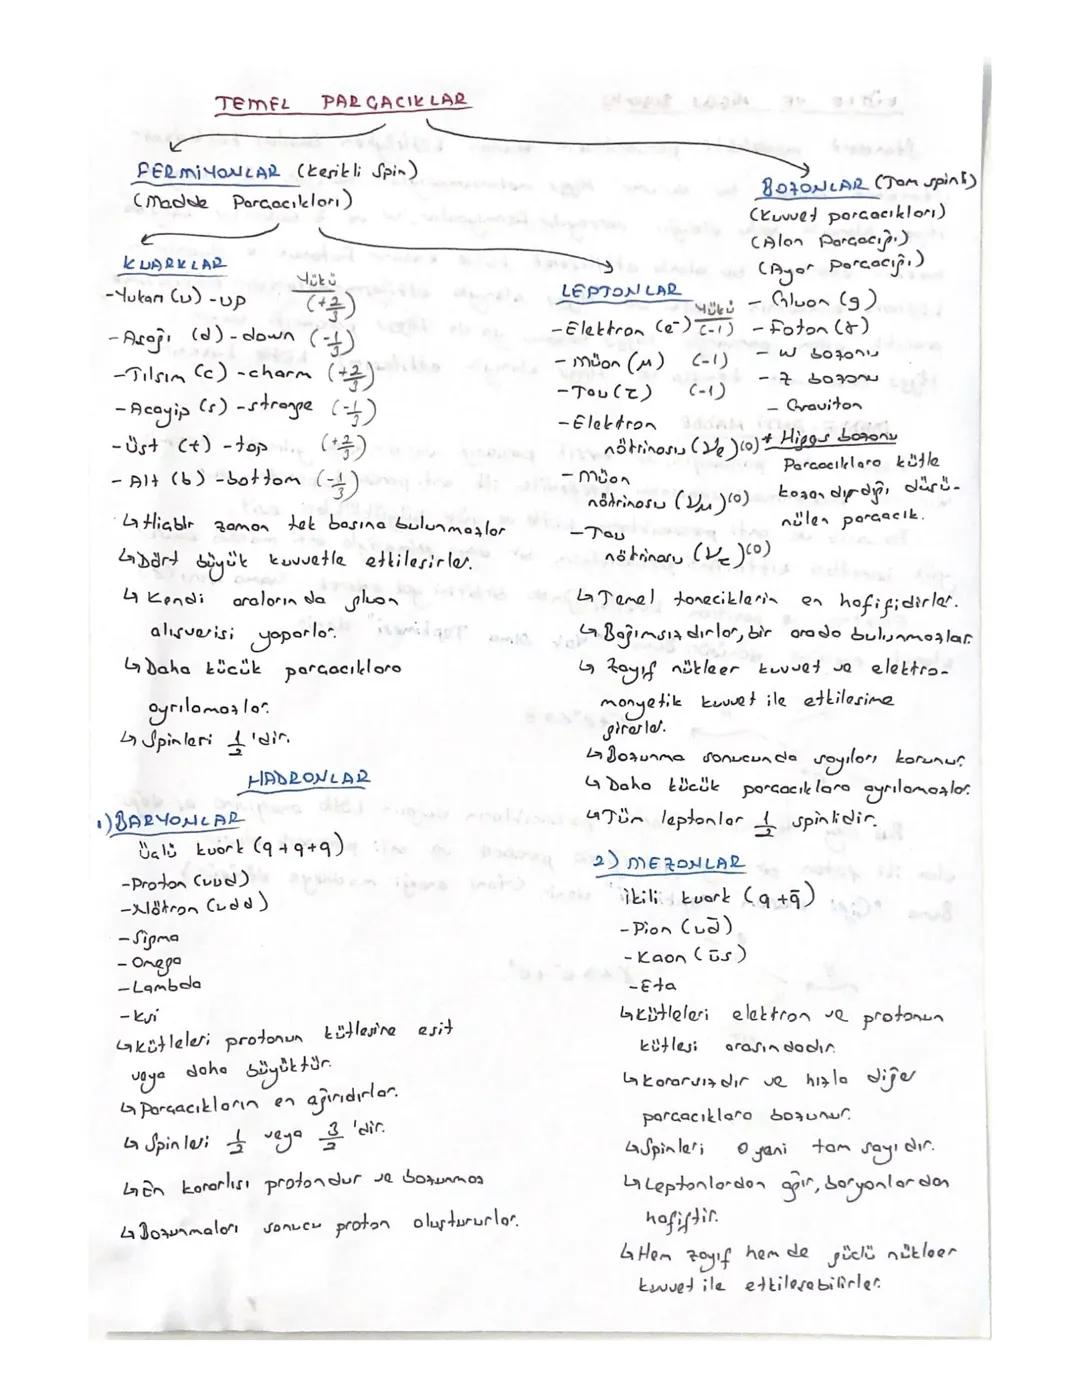 TEMEL PARÇACIKLAR
FERMİYONLAR (Kesikli Spin)
(Madde Parçacıkları)
BOZONLAR (Tam spinli)
(Kuvvet parçacıkları)
(Alan Parçacığı)
(Ayar Parçacığı)
- Gluon (g)
- Foton (γ)
- W bozonu
- Z bozonu
- Graviton
* Higgs bozonu
Parçacıklara kütle
kazandırdığı düşü-
nülen parçacık.
KUARKLAR
Yükü
-Yukarı (u) -up (+2/3)
- Aşağı (d) - down (-1/3)
-Tılsım (c) -charm (+2/3)
- Acayip (s) - strange (-1/3)
-Üst (t) - top (+2/3)
- Alt (b) - bottom (-1/3)
↳ Hiçbir zaman tek başına bulunmazlar
↳ Dört büyük kuvvetle etkileşirler.
↳ Kendi aralarında gluon
alışverişi yaparlar.
↳ Daha küçük parçacıklara
ayrılamazlar.
↳ Spinleri 1/2 'dir.
LEPTONLAR
Yükü
- Elektron (e⁻) (-1)
- Müon (μ) (-1)
- Tau (τ) (-1)
- Elektron
nötrinosu (νe)(0)
- Müon
nötrinosu (νμ)(0)
- Tau
nötrinosu (ντ)(0)
↳ Temel taneciklerin en hafifidirler.
↳ Bağımsızdırlar, bir arada bulunmazlar.
↳ Zayıf nükleer kuvvet ve elektro-
manyetik kuvvet ile etkileşime
girerler.
↳ Bozunma sonucunda sayıları korunur.
↳ Daha küçük parçacıklara ayrılamazlar.
↳ Tüm leptonlar 1/2 spinlidir.
HADRONLAR
1) BARYONLAR
üçlü kuark (q+q+q)
- Proton (uud)
- Nötron (udd)
- Sigma
- Omega
- Lambda
- Ksi
↳ Kütleleri protonun kütlesine eşit
veya daha büyüktür.
↳ Parçacıkların en ağırıdırlar.
↳ Spinleri 1/2 veya 3/2 'dir.
↳ En kararlısı protondur ve bozunmaz
↳ Bozunmaları sonucu proton oluştururlar.
2) MEZONLAR
ikili kuark (q+q̄)
- Pion (ud̄)
- Kaon (ūs)
- Eta
↳ Kütleleri elektron ve protonun
kütlesi arasındadır.
↳ Kararsızdır ve hızla diğer
parçacıklara bozunur.
↳ Spinleri 0 yani tam sayıdır.
↳ Leptonlardan ağır, baryonlardan
hafiftir.
↳ Hem zayıf hem de güçlü nükleer
kuvvet ile etkileşebilirler.